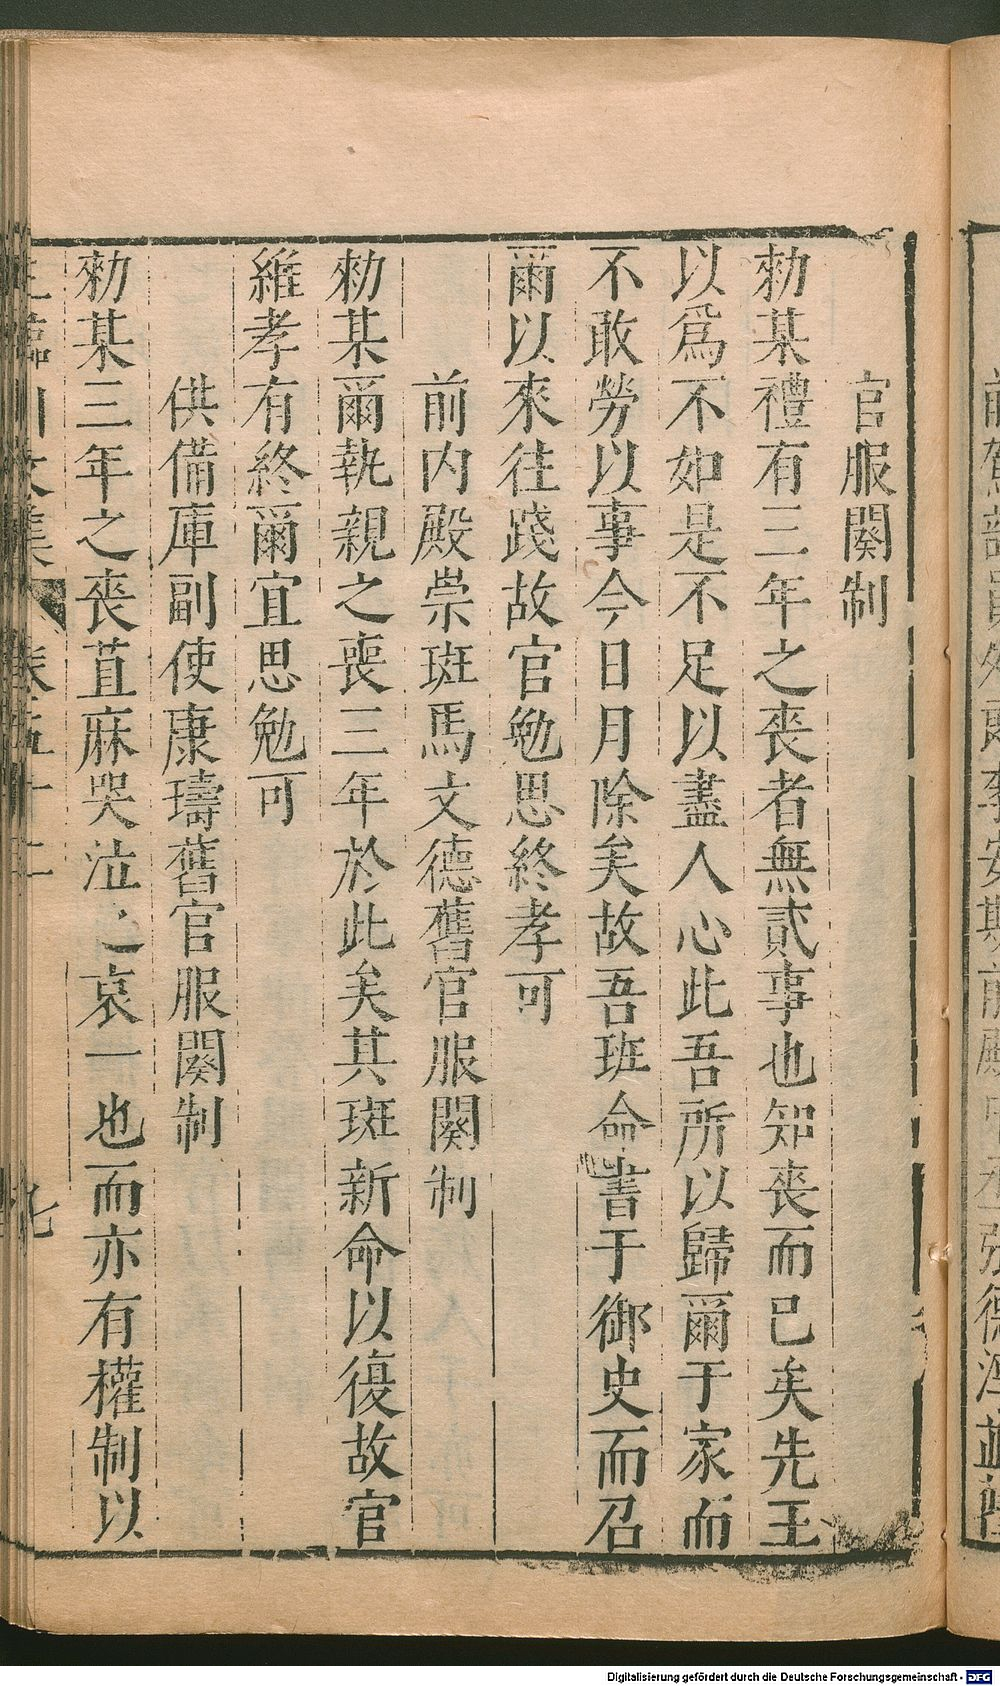 官服闋制
勑某禮有三年之喪者無貳事也知喪而已矣先王
以爲不如是不足以盡人心此吾所以歸爾于家而
不敢勞以事今日月除矣故吾班命書于御史而召
爾以來往踐故官勉思終孝可
前内殿崇班馬文德舊官服闋制
勑某爾執親之喪三年於此矣其班新命以復故官
維孝有終爾宜思勉可
供備庫副使康璹舊官服闋制
勑某三年之喪苴麻哭泣之哀一也而亦有權制以
Digitalisierung gefördert durch die Deutsche Forschungsgemeinschaft - DFG